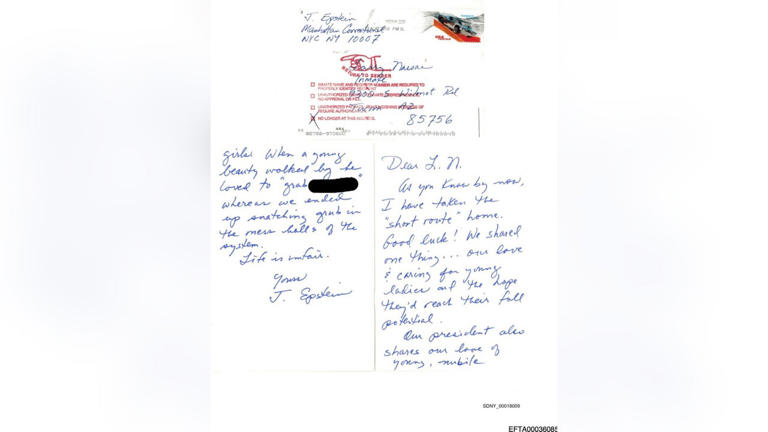 J. Epstein
Manhattan Correctional
NYC NY 10007
RETURN TO SENDER
Inmate
9300 S Wilmot Rd
AZ
85756
INMATE NAME AND REGISTER NUMBER ARE REQUIRED TO
PROPERLY IDENTIFY
UNAUTHORIZED
NO APPROVAL ON FILE.
UNAUTHORIZED
REQUIRE
NO LONGER AT THIS ADDRESS.
girls. When a young
beauty walked by he
loved to "grab "
whereas we ended
up snatching grub in
the mess halls of the
system.
Life is unfair.
Yours
J. Epstein
Dear L. N.
As you know by now,
I have taken the
"short route" home.
Good luck! We shared
one thing... our love
& caring for young
ladies and the hope
they'd reach their full
potential.
Our president also
shares our love of
young, nubile
SDNY_00018009
EFTA00036085